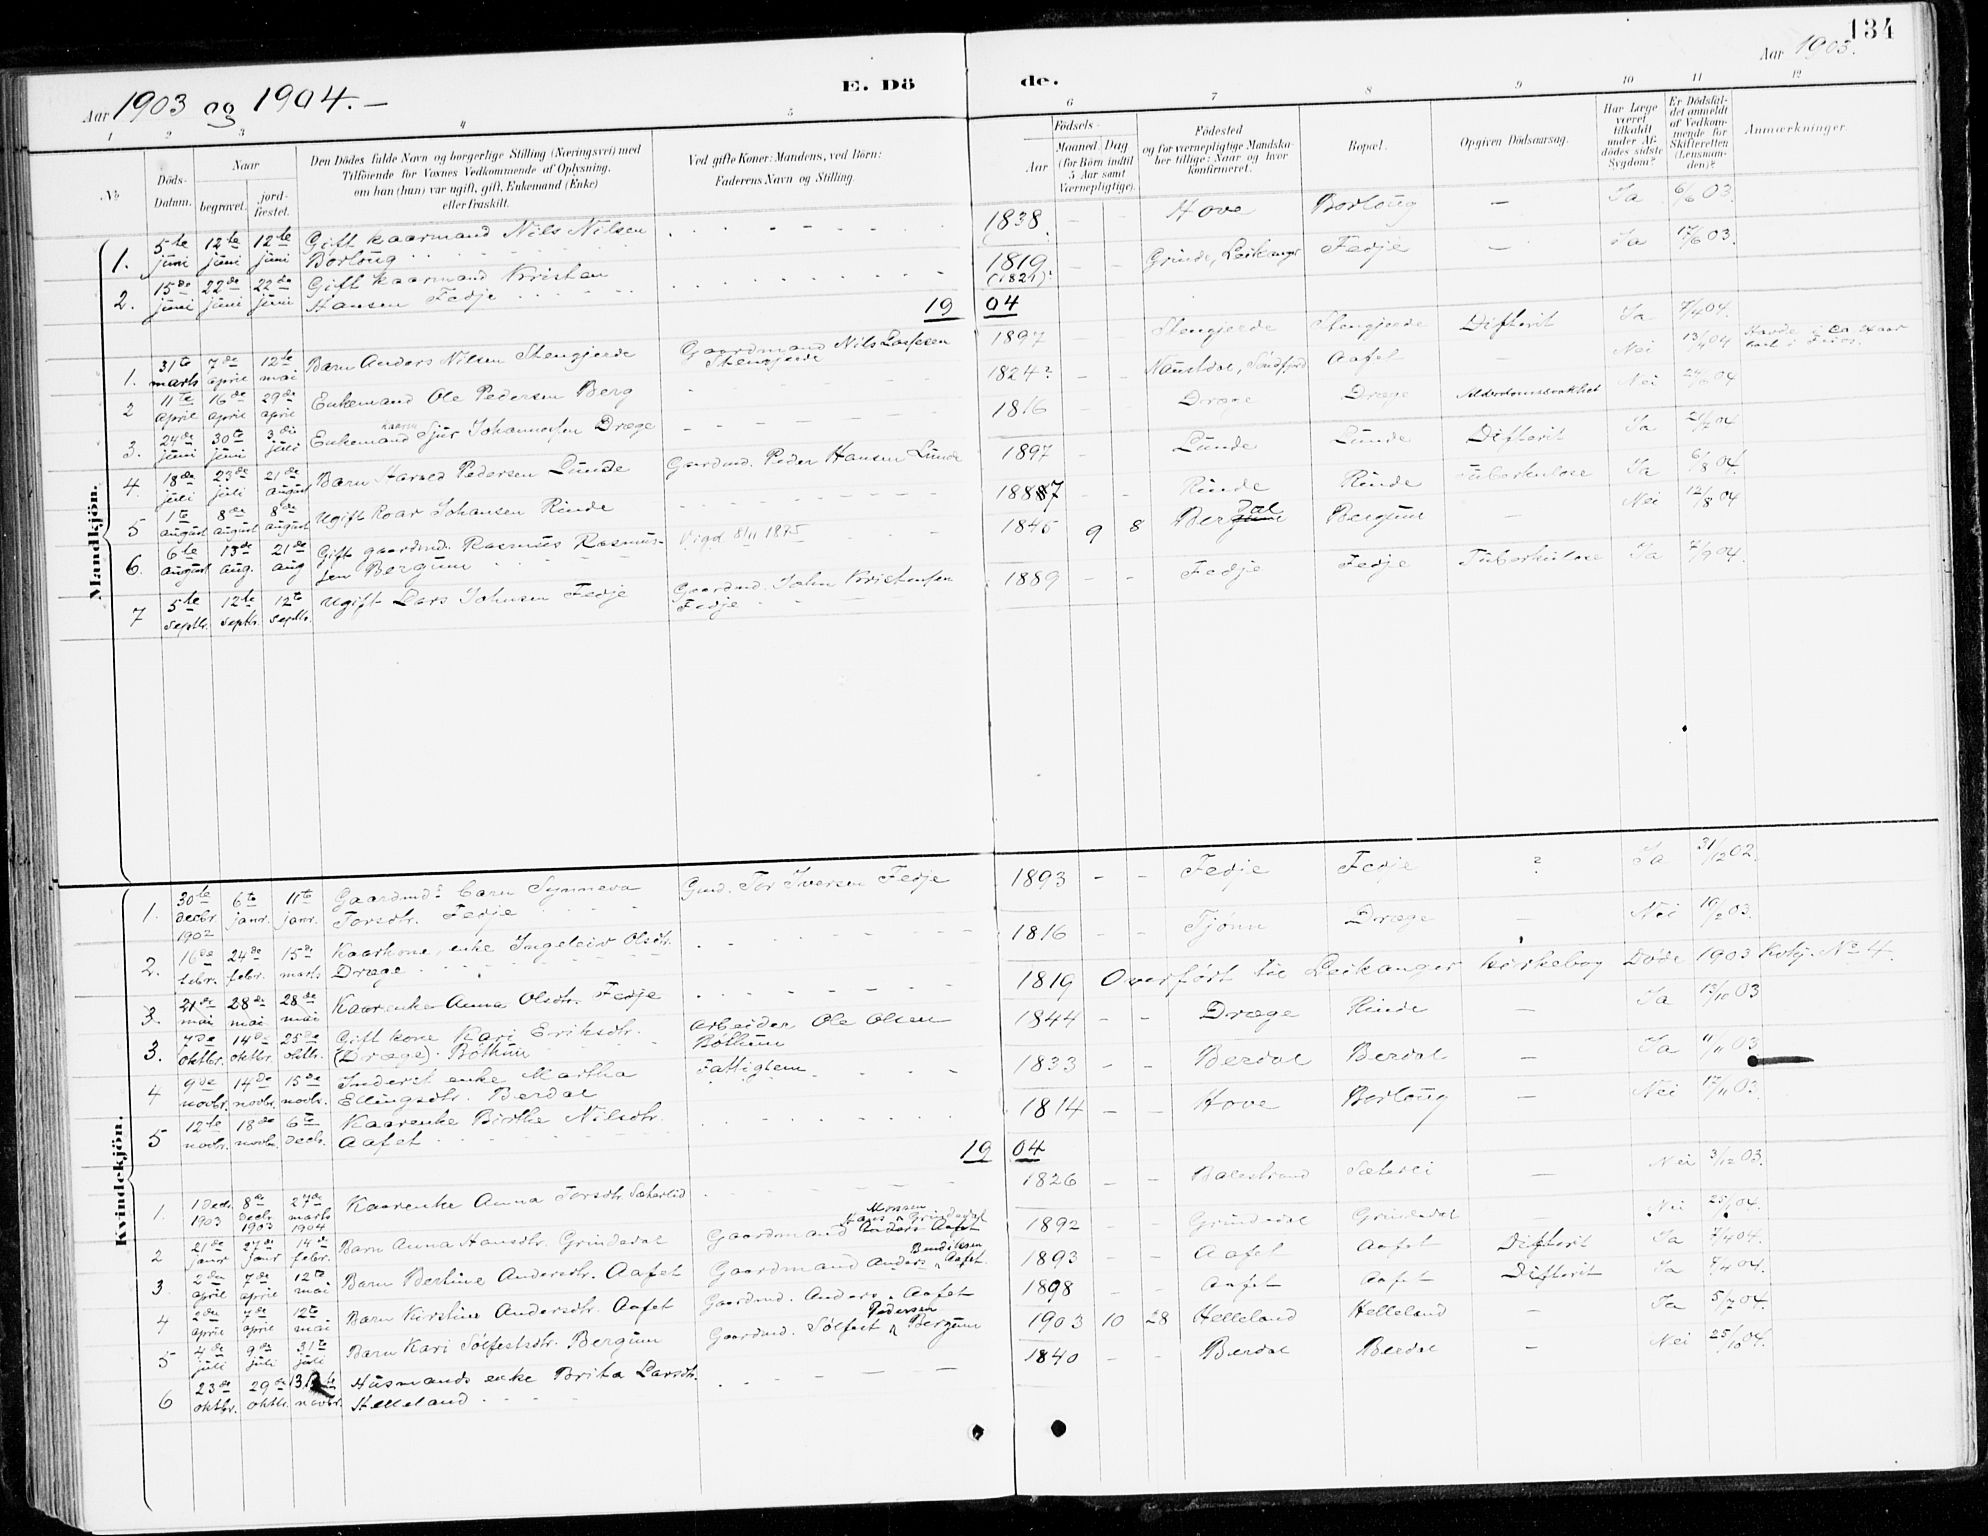 134
Aar 1903 og 1904. –
E. Dö
de.
Aar 1903.
1 2 3 4 5 6 7 8 9 10 11 12
No
Döds-Datum.
Naar
begravet.
jord-fæstet.
Den Dödes fulde Navn og borgerlige Stilling (Næringsvei) med
Tilföiende for Voxnes Vedkommende af Oplysning,
om han (hun) var ugift, gift, Enkemand (Enke)
eller fraskilt.
Ved gifte Koner: Mandens, ved Börn:
Faderens Navn og Stilling
Födsels-
Aar
Maaned Dag
(for Börn indtil
5 Aar samt
Værnepligtige).
Födested
og for værnepligtige Mandska-
ber tillige: Naar og hvor
konfirmeret.
Bopæl.
Opgiven Dödsaarsag.
Har Læge
været
tilkaldt
under Af-
dödes sidste
Sygdom?
Er Dödsfal-
det anmeldt
af Vedkom-
mende for
Skifteretten
(Lensman-
den)?
Anmærkninger.
Mandkjön.
1. 5te juni 12te juni 12te juni Gift kaarmand Nils Nilsen Borloug 1838. – – Hove Borloug – Ja 6/6 03.
2. 15de juni 22de juni 22de juni Gift kaarmand Kristen Hansen Fedje 1819 (1821)? – – Grinde, Leikanger Fedje – Ja 17/6 03.
19 04
1. 31te marts 7de april 12te mai Barn Anders Nilsen Stengjerde Gaardmand Nils Lassesen Stengjerde 1897 Stengjerde Stengjerde Difterit Ja 7/4 04.
2 11te april 16de april 29de april Enkemand Ole Pedersen Berg 1824? – – Naustdal, Söndfjord Aafet – Nei 13/4 04
3. 24de juni 30te juni 3die juli Enkemand Sjur Johannessen Dræge 1816 – – Dræge Dræge Alderdomssvakhet Nei 24/6 04
4. 18de juli 23de juli 21de august Barn Harald Pedersen Lunde Gaardmd. Peder Hansen Lunde 1897 – Lunde Lunde Difterit Ja 21/7 04
5 1te august 8de august 8de august Ugift Roar Johansen Rinde 1887 – – Rinde Rinde Tuberkulose Ja 6/8 04.
6. 6te august 13de aug. 21de aug Gift gaardmd. Rasmus Rasmus-sen Bergum Vigd 8/11 1875 1845 9 8 Bergdal Bergum – Nei 12/8 04
7 5te septbr. 12te septbr. 12te septbr. Ugift Lars Johnsen Fedje Gaardmd. John Kristensen Fedje 1889 – – Fedje Fedje Tuberkulose Ja 7/9 04.
Kvindekjön.
1. 30te decbr 1902 6te janr. 11te janr. Gaardmds barn Synneva Torsdtr. Fedje Gmd. Tor Iversen Fedje 1893 – – Fedje Fedje ? Ja 31/12 02.
2. 16de febr. 24de febr. 15de marts Kaarkone, enke Ingeleiv Olsdtr. Dræge 1816 – – Tjönn Dræge – Nei 19/2 03.
3. 21de mai 28de mai 28de mai Kaarenke Anna Olsdtr. Fedje 1819 Overfört til Leikanger kirkebog Döde 1903 Kvkj. No 4.
3. 7de oktbr. 14de oktbr. 25de oktbr. Gift kone Kari Eriksdtr. (Dræge). Böthun Arbeider Ole Olsen Böthun 1844 – – Dræge Rinde – Ja 13/10 03
4 9de novbr. 14de novbr. 15de novbr. Inderst enke Martha Ellingsdtr. Berdal Fattiglem 1833 – – Berdal Berdal – Ja 11/11 03
5 12te novbr. 18de novbr. 6te decbr. Kaarenke Birthe Nilsdtr. Aafet 1814 – – Hove Borloug – Nei 17/11 03.
19 04
1. 1 decbr. 1903 8de decbr 1903 27de marts 1904 Kaarenke Anna Torsdtr. 1826 – – Balestrand – Nei 3/12 03.
2 21de janr 27de janr 14de febr. Barn Anna Hansdtr. Grindedal Gaardmand Hans Monsen Grindedal 1892 – – Grindedal Grindedal – Nei 25/1 04.
3. 2den april 7de april 12te mai Barn Bertine Andersdtr. Aafet Gaardmand Anders Bendiksen Aafet. 1893 – – Aafet Aafet Difterit Ja 7/4 04.
4 2den april 7de april 12te mai. Barn Kirstine Andersdtr. Aafet Gaardmd. Anders Aafet 1898 – – Aafet Aafet Difterit Ja 7/4 04.
5 4de juli 9de juli 31te juli Barn Kari Sölfestsdtr. Bergum Gaardmd. Sölfest Pedersen Bergum 1903 10 28 Helleland Helleland – Ja 5/7 04.
6 23de oktbr. 29de oktbr. novbr. Husmands enke Brita Larsdtr. Helleland 1840 – – Berdal Berdal – Nei 25/10 04.